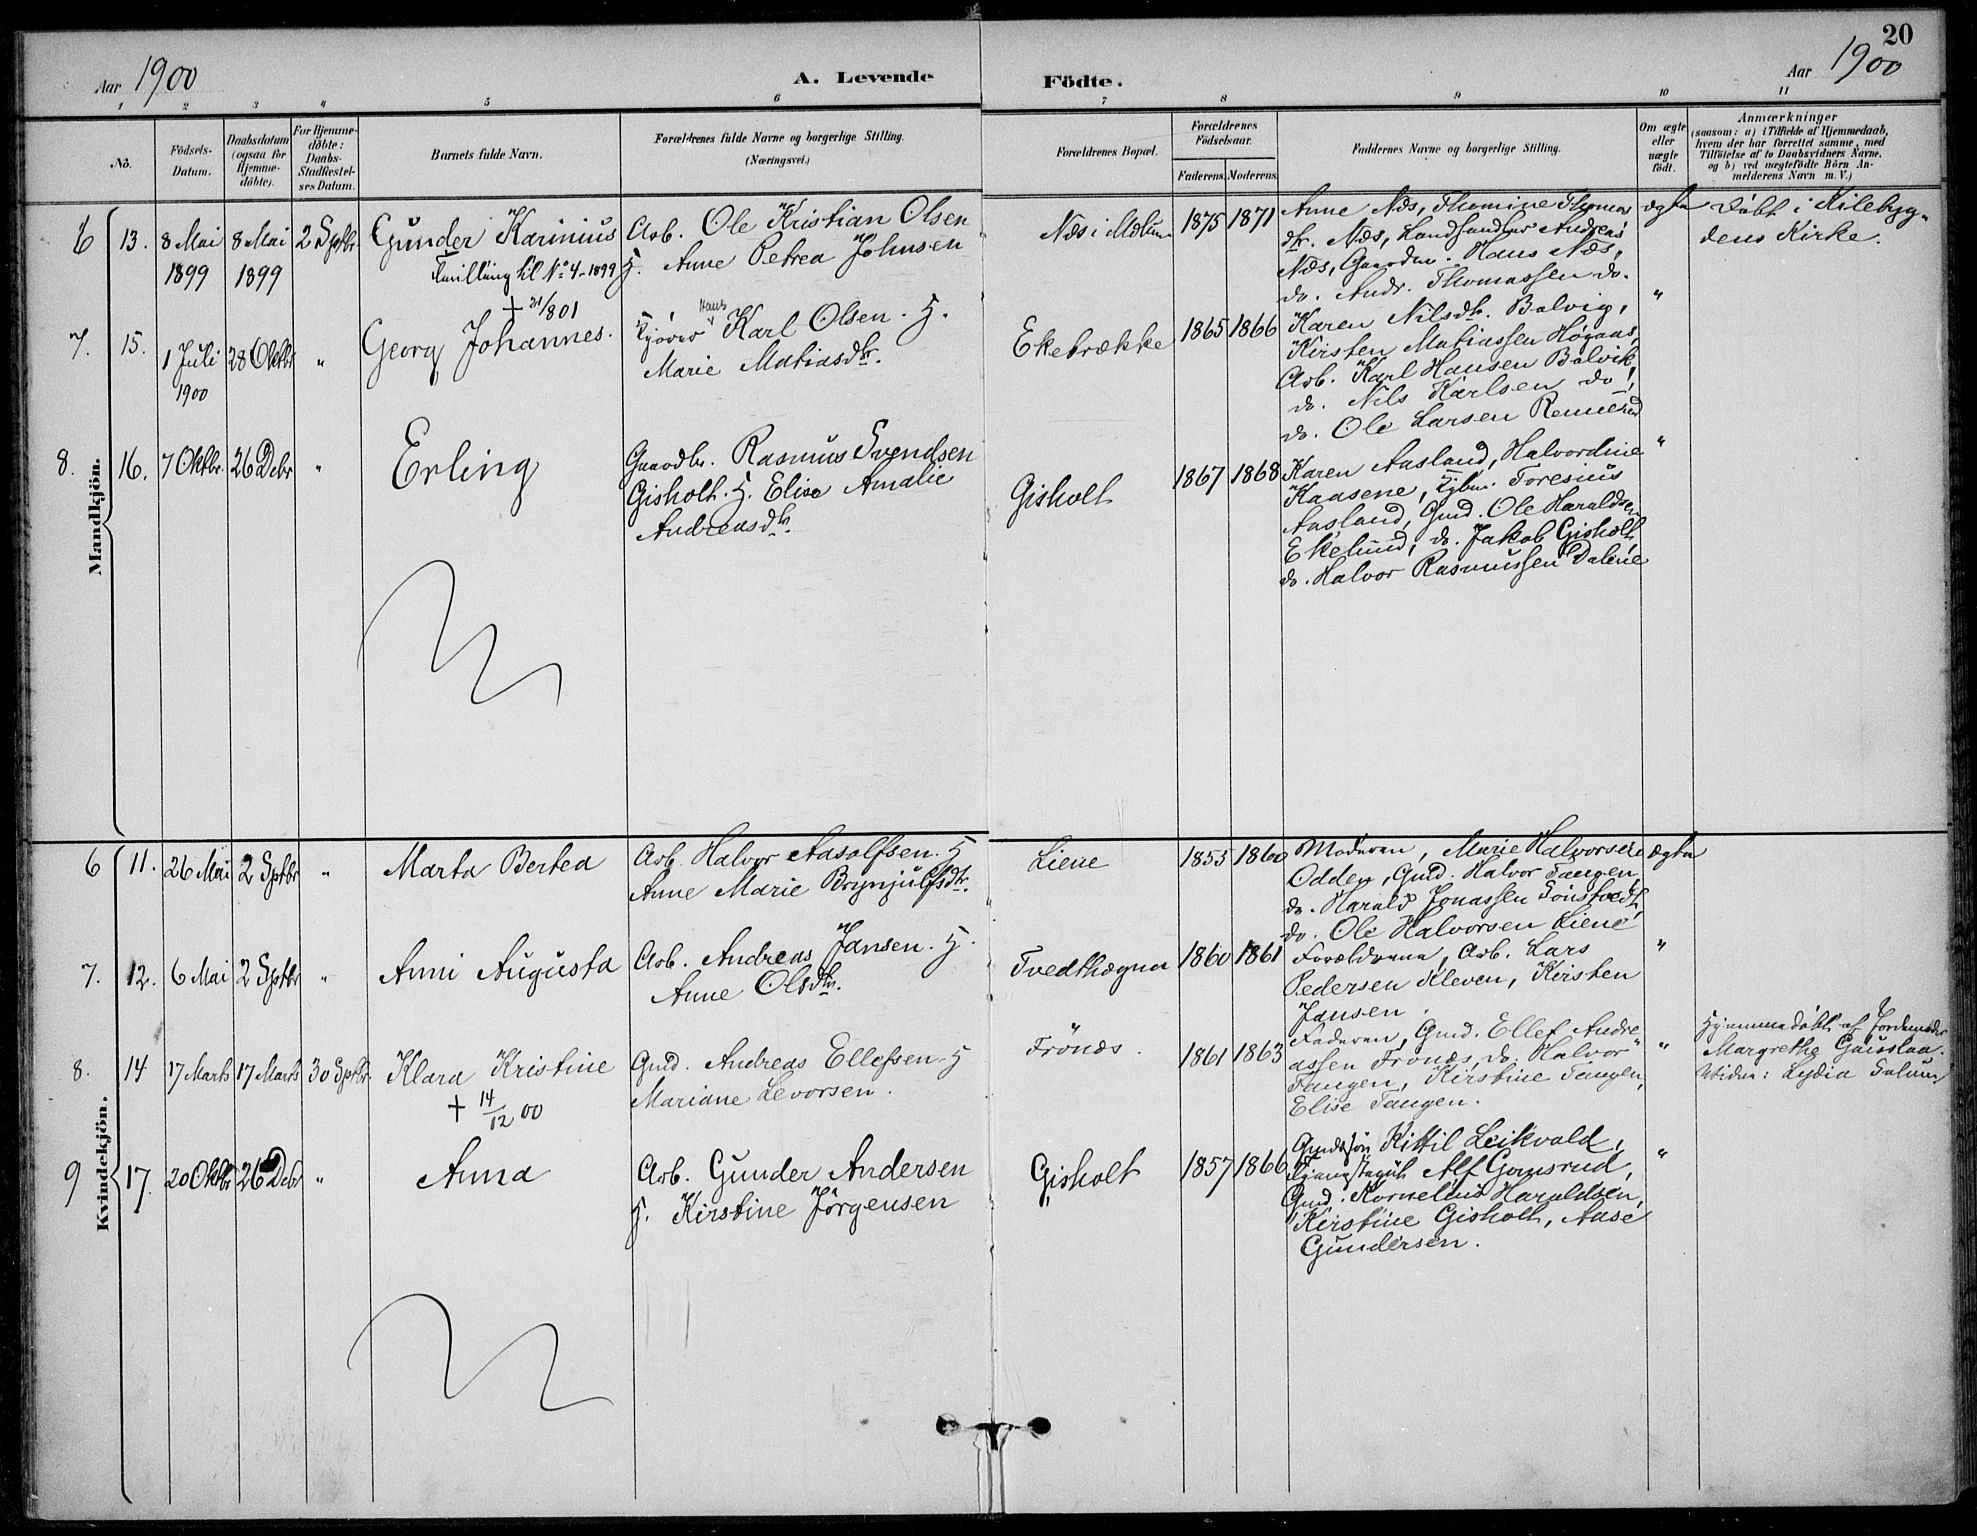 20
Aar 1900
A. Levende Födte.
Aar 1900
1 2 3 4 5 6 7 8 9 10 11
No.
Födsels-
Datum.
Daabsdatum
(ogsaa for
Hjemme-
döbte).
For Hjemme-
döbte:
Daabs-
Stadfæstel-
ses Datum.
Barnets fulde Navn.
Forældrenes fulde Navne og borgerlige Stilling.
(Næringsvei.)
Forældrenes Bopæl.
Forældrenes
Födselsaar.
Faderens. Moderens.
Faddernes Navne og borgerlige Stilling.
Om ægte
eller
uægte
født.
Anmærkninger
(saasom: a) i Tilfælde af Hjemmedaab,
hvem der har forrettet samme, med
Tilføielse af to Daabsvidners Navne,
og b) ved uægtefödte Börn An-
melderens Navn m. V.)
Mandkjön.
6 13. 8 Mai 8 Mai 2 Sptbr.
1899 1899
Gunder Karinius
Tvilling til No 4-1899
Arb. Ole Kristian Olsen
H. Anne Petrea Johnsen
Næs i Mælum 1875 1871
Anne Næs, Thomine Thomas
dtr. Næs, Landhandler Andreas
Næs, Gaardm. Hans Næs,
do. Andr. Thomassen do.
ægte
Døbt i Kilebyg-
dens Kirke.
7. 15. 1 Juli 28 Oktbr "
1900
+ 21/8 01
Georg Johannes.
Hans
Kjører Karl Olsen. H.
Marie Matiasdtr.
Ekebrække 1865 1866
Karen Nilsdtr. Bolvig,
Kirsten Matiassen Høgaas,
Arb. Karl Hansen Bolvik,
do. Nils Karlsen do,
do. Ole Larsen
"
8. 16. 7 Oktbr. 26 Debr "
Erling
Gaardbr. Rasmus Svendsen
Gisholt. H. Elise Amalie
Andreasdtr.
Gisholt 1867 1868
Karen Aasland, Halvordine
Kaasene, Toresius
Aasland, Gmd. Ole Haraldsen
Ekelund, do. Jakob Gisholt,
do. Halvor Rasmussen Dalene
"
Kvindekjön.
6 11. 26 Mai 2 Sptbr "
Marta Bertea
Arb. Halvor Aasolfsen. H
Anne Marie Brynjulfsdtr.
Liene 1855 1860
Moderen, Marie Halvorsen
Odden, Gmd. Halvor Tangen,
do. Harald Jonassen Tönstvedt,
do. Ole Halvorsen Liene
ægte
7. 12. 6 Mai 2 Sptbr "
Anni Augusta
Arb. Andreas Jansen. H.
Anne Olsdtr.
Tvedthægna 1860 1861
Forældrene, Arb. Lars
Pedersen Kleven, Kirsten
Jansen.
"
8. 14 17 Marts 17 Marts 30 Sptbr.
Klara Kristine
+ 14/12 00
Gmd. Andreas Ellefsen. H
Mariane Levorsen.
Frönæs. 1861 1863
Faderen, Gmd. Ellef Andre
assen Frönæs, do. Halvor
Tangen, Kirstine Tangen,
Elise Tangen.
"
Hjemmedøbt af Jordemoder
Margrethe
Vidne: Lydia
9 17. 20 Oktbr 26 Debr "
Anna
Arb. Gunder Andersen
H. Kirstine Jörgensen
Gisholt 1857 1866
Gmdssøn Kittil Leikvold,
Tjenestegut Alf Gomsrud,
Gmd. Kornelius Haraldsen,
Kirstine Gisholt, Aase
Gundersen.
"